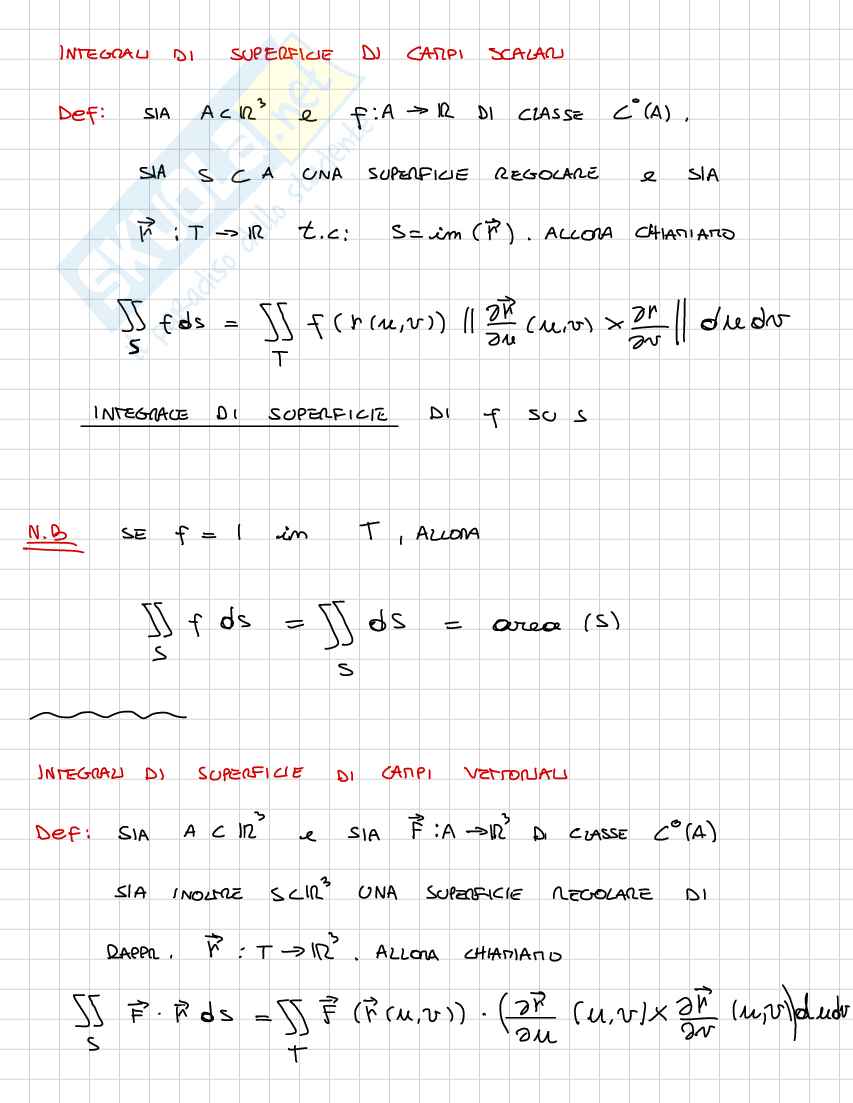 INTEGRALI DI SUPERFICIE DI CAMPI SCALARI
Def: SIA A ⊂ ℝ³ e f : A → ℝ DI CLASSE C⁰(A).
SIA S ⊂ A UNA SUPERFICIE REGOLARE e SIA
r⃗ : T → ℝ t.c: S = im (r⃗). ALLORA CHIAMIAMO
∬_S f ds = ∬_T f(r(u,v)) ‖ ∂r⃗/∂u (u,v) × ∂r/∂v ‖ du dv
INTEGRALE DI SUPERFICIE DI f SU S
N.B SE f = 1 in T, ALLORA
∬_S f ds = ∬_S ds = area (S)
INTEGRALI DI SUPERFICIE DI CAMPI VETTORIALI
Def: SIA A ⊂ ℝ³ e SIA F⃗ : A → ℝ³ DI CLASSE C⁰(A)
SIA INOLTRE S ⊂ ℝ³ UNA SUPERFICIE REGOLARE DI
RAPPR. r⃗ : T → ℝ³. ALLORA CHIAMIAMO
∬_S F⃗ · n⃗ ds = ∬_T F⃗ (r⃗(u,v)) · (∂r⃗/∂u (u,v) × ∂r⃗/∂v (u,v)) du dv
SKUOLA.net
il paradiso dello studente